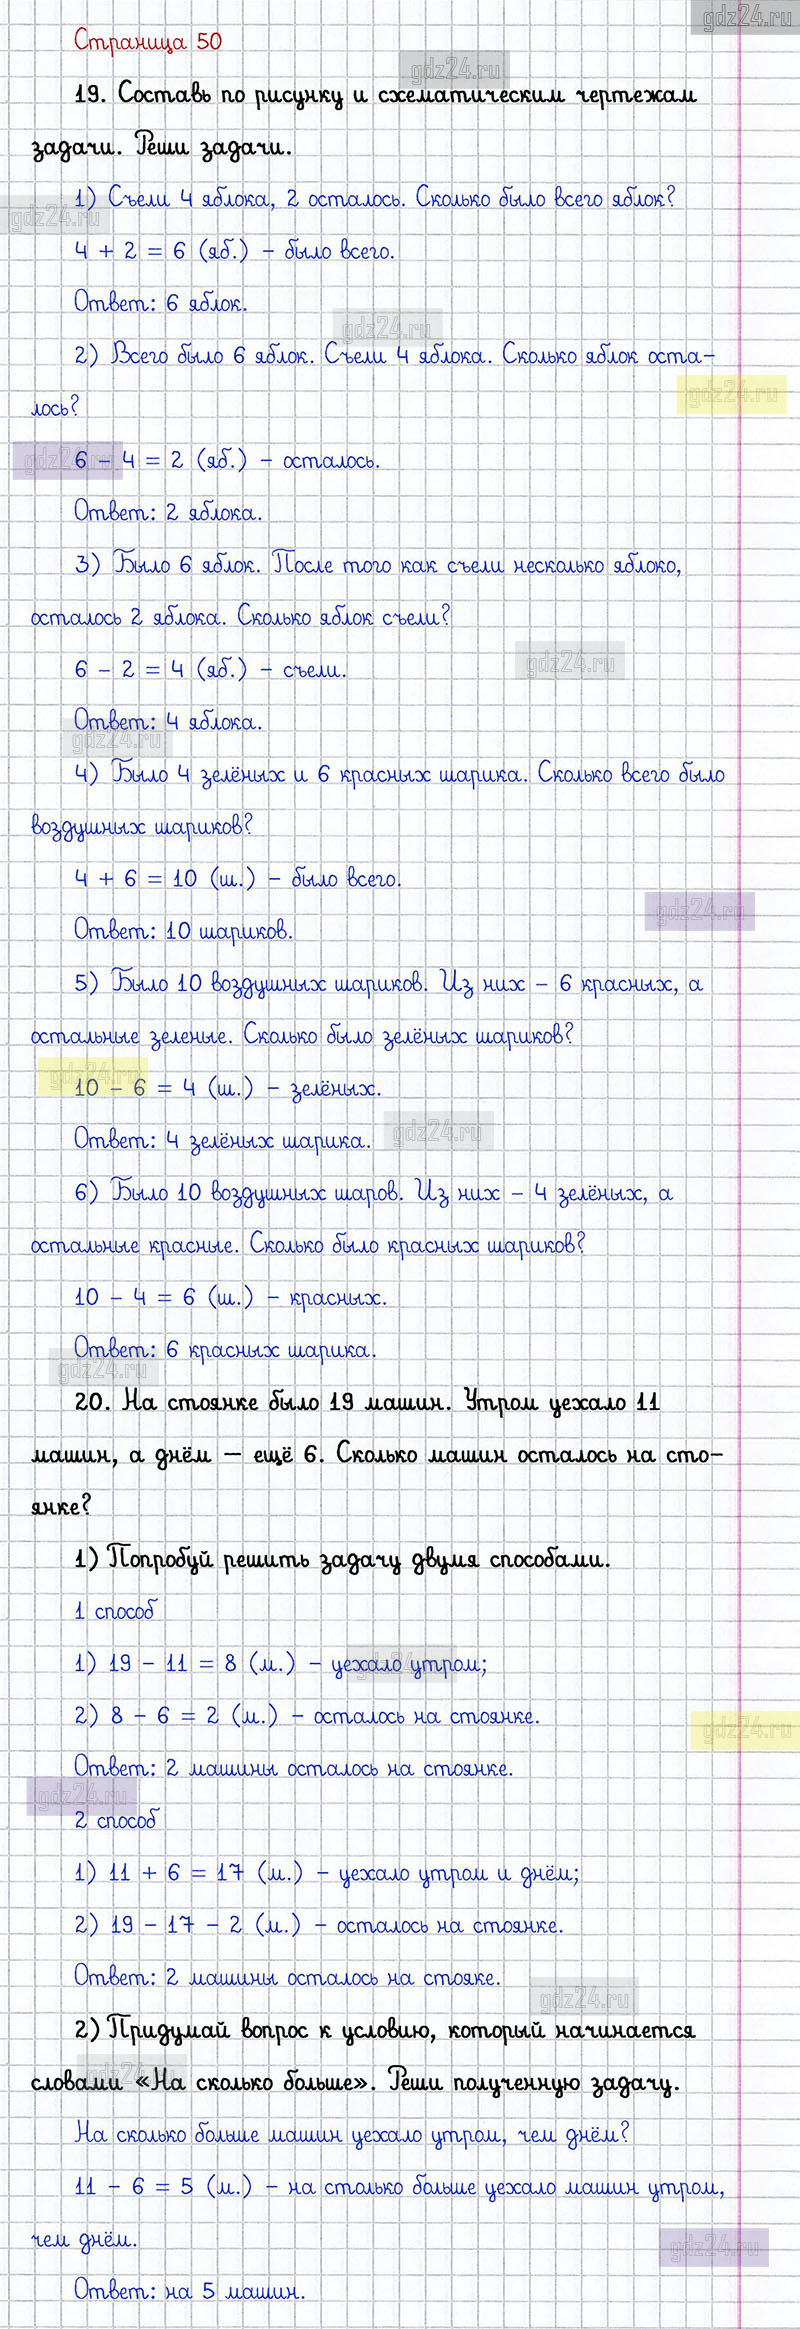 gdz24.ru
Страница 50
gdz24.ru
19. Составь по рисунку и схематическим чертежам
задачи. Реши задачи.
1) Съели 4 яблока, 2 осталось. Сколько было всего яблок?
gdz24.ru
4 + 2 = 6 (яб.) – было всего.
Ответ: 6 яблок.
gdz24.ru
2) Всего было 6 яблок. Съели 4 яблока. Сколько яблок оста-
gdz24.ru
лось?
gdz24.ru
6 – 4 = 2 (яб.) – осталось.
Ответ: 2 яблока.
3) Было 6 яблок. После того как съели несколько яблоко,
осталось 2 яблока. Сколько яблок съели?
gdz24.ru
6 – 2 = 4 (яб.) – съели.
Ответ: 4 яблока.
gdz24.ru
4) Было 4 зелёных и 6 красных шарика. Сколько всего было
воздушных шариков?
4 + 6 = 10 (ш.) – было всего.
gdz24.ru
Ответ: 10 шариков.
5) Было 10 воздушных шариков. Из них – 6 красных, а
остальные зеленые. Сколько было зелёных шариков?
gdz24.ru
10 – 6 = 4 (ш.) – зелёных.
Ответ: 4 зелёных шарика.
gdz24.ru
6) Было 10 воздушных шаров. Из них – 4 зелёных, а
остальные красные. Сколько было красных шариков?
10 – 4 = 6 (ш.) – красных.
Ответ: 6 красных шарика.
gdz24.ru
20. На стоянке было 19 машин. Утром уехало 11
машин, а днём — ещё 6. Сколько машин осталось на сто-
янке?
1) Попробуй решить задачу двумя способами.
1 способ
1) 19 – 11 = 8 (м.) – уехало утром;
gdz24.ru
2) 8 – 6 = 2 (м.) – осталось на стоянке.
gdz24.ru
Ответ: 2 машины осталось на стоянке.
gdz24.ru
2 способ
1) 11 + 6 = 17 (м.) – уехало утром и днём;
2) 19 – 17 – 2 (м.) – осталось на стоянке.
Ответ: 2 машины осталось на стояке.
gdz24.ru
2) Придумай вопрос к условию, который начинается
gdz24.ru
словами «На сколько больше». Реши полученную задачу.
На сколько больше машин уехало утром, чем днём?
11 – 6 = 5 (м.) – на столько больше уехало машин утром,
чем днём.
gdz24.ru
Ответ: на 5 машин.